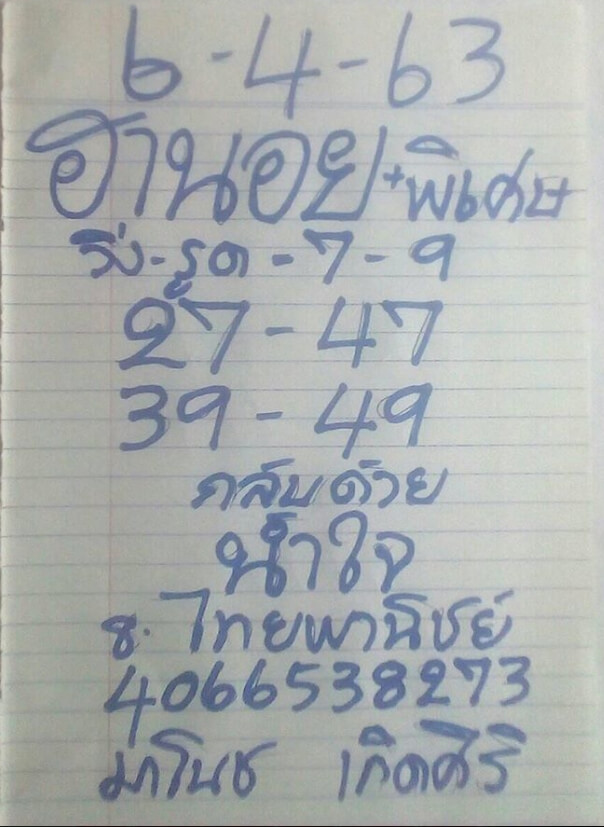 6-4-63
ฮานอย+พิเศษ
วิ่ง-รูด-7-9
27-47
39-49
กลับด้วย
น้ำใจ
ธ. ไทยพานิชย์
4066538273
มาโนช เกิดศิริ